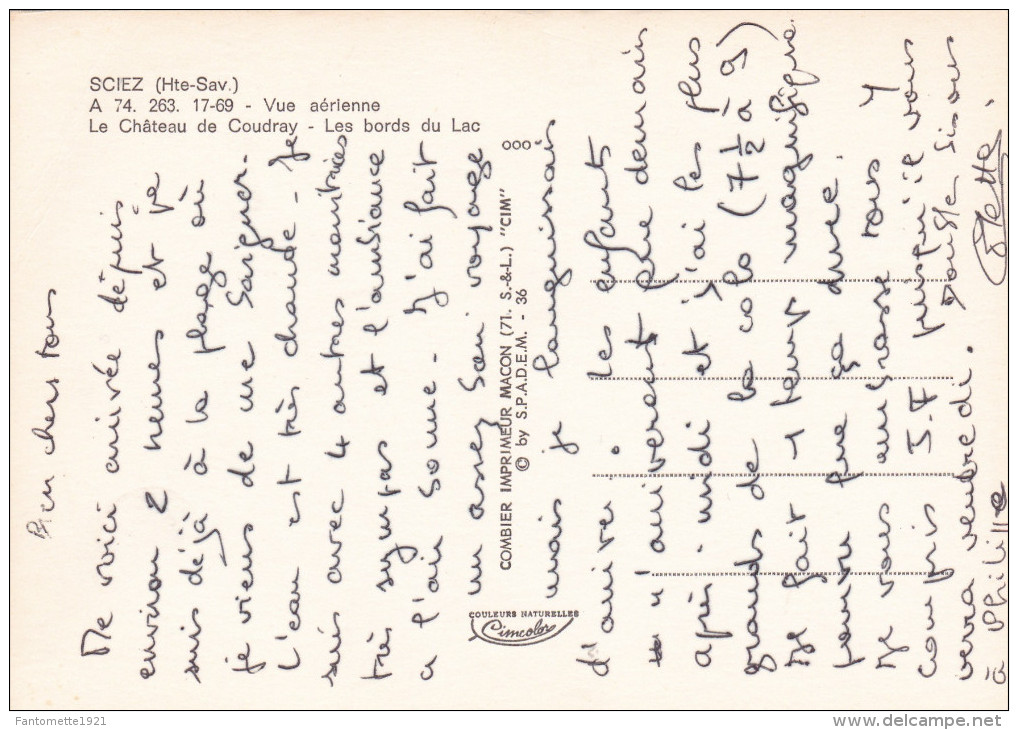 SCIEZ (Hte-Sav.)
A 74. 263. 17-69 - Vue aérienne
Le Château de Coudray - Les bords du Lac
Bien chers tous
Me voici arrivée depuis
environ 2 heures et ne
suis déjà à la plage où
je viens de me baigner.
L'eau est très chaude. Je
suis avec 4 autres monitrices
très sympas et l'ambiance
a l'air bonne. J'ai fait
un assez bon voyage
mais je languissais
d'arriver. Les enfants
n'arriveront que demain
après-midi et j'ai les plus
grands de la colo (7 1/2 à 9)
Il fait 1 temps magnifique
pourvu que ça dure.
Je vous embrasse tous y
compris J.F puisqu'il vous
verra vendredi. Grosses bisous
à Philippe
COMBIER IMPRIMEUR MACON (71. S.-&-L.) "CIM"
© by S.P.A.D.E.M. - 36
COULEURS NATURELLES
Cimcolor
Fantomette1921
delcampe.net